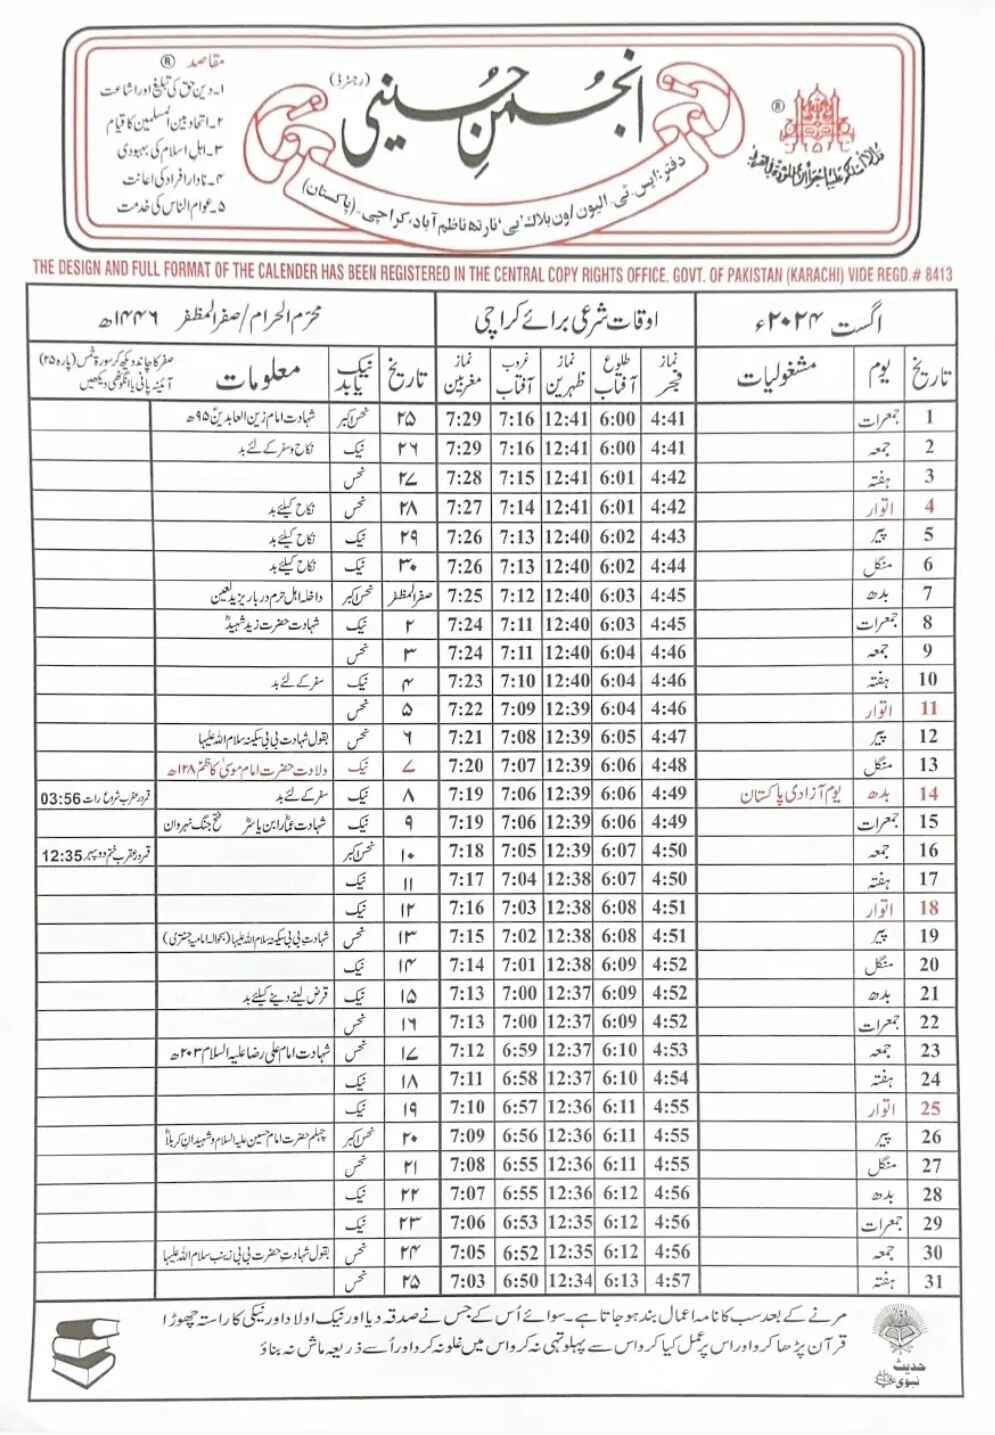 مقاصد ®
۱۔ دین حق کی تبلیغ اور اشاعت
۲۔ اتحاد بین المسلمین کا قیام
۳۔ اہل اسلام کی بہبودی
۴۔ نادار افراد کی اعانت
۵۔ عوام الناس کی خدمت
انجمن حسینی (رجسٹرڈ)
®
دفتر: ایس۔ٹی۔الیون/ون بلاک 'بی' نارتھ ناظم آباد، کراچی۔ (پاکستان)
THE DESIGN AND FULL FORMAT OF THE CALENDER HAS BEEN REGISTERED IN THE CENTRAL COPY RIGHTS OFFICE. GOVT. OF PAKISTAN (KARACHI) VIDE REGD.# 8413
اگست ۲۰۲۴ء اوقات شرعی برائے کراچی محرم الحرام/صفر المظفر ۱۴۴۶ھ
تاریخ یوم مشغولیات نماز فجر طلوع آفتاب نماز ظہرین غروب آفتاب نماز مغربین تاریخ نیک یا بد معلومات صفر کا چاند دیکھ کر سورۃ شمس (پارہ ۲۵) آئینہ پانی یا انگوٹھی دیکھیں
1 جمعرات 4:41 6:00 12:41 7:16 7:29 ۲۵ نحس اکبر شہادت امام زین العابدینؑ ۹۵ھ
2 جمعہ 4:41 6:00 12:41 7:16 7:29 ۲۶ نیک نکاح و سفر کے لئے بد
3 ہفتہ 4:42 6:01 12:41 7:15 7:28 ۲۷ نحس
4 اتوار 4:42 6:01 12:41 7:14 7:27 ۲۸ نحس نکاح کیلئے بد
5 پیر 4:43 6:02 12:40 7:13 7:26 ۲۹ نیک نکاح کیلئے بد
6 منگل 4:44 6:02 12:40 7:13 7:26 ۳۰ نیک نکاح کیلئے بد
7 بدھ 4:45 6:03 12:40 7:12 7:25 صفر المظفر نحس اکبر داخلہ اہل حرم دربار یزید لعین
8 جمعرات 4:45 6:03 12:40 7:11 7:24 ۲ نیک شہادت حضرت زید شہیدؒ
9 جمعہ 4:46 6:04 12:40 7:11 7:24 ۳ نحس
10 ہفتہ 4:46 6:04 12:40 7:10 7:23 ۴ نیک سفر کے لئے بد
11 اتوار 4:46 6:04 12:39 7:09 7:22 ۵ نحس
12 پیر 4:47 6:05 12:39 7:08 7:21 ۶ نحس بقول شہادت بی بی سکینہ سلام اللہ علیہا
13 منگل 4:48 6:06 12:39 7:07 7:20 ۷ نیک ولادت حضرت امام موسیٰ کاظمؑ ۱۲۸ھ
14 بدھ یوم آزادی پاکستان 4:49 6:06 12:39 7:06 7:19 ۸ نیک سفر کے لئے بد قمر در عقرب شروع رات 03:56
15 جمعرات 4:49 6:06 12:39 7:06 7:19 ۹ نیک شہادت عمارؓ ابن یاسرؓ فتح جنگ نہروان
16 جمعہ 4:50 6:07 12:39 7:05 7:18 ۱۰ نحس اکبر قمر در عقرب ختم دوپہر 12:35
17 ہفتہ 4:50 6:07 12:38 7:04 7:17 ۱۱ نیک
18 اتوار 4:51 6:08 12:38 7:03 7:16 ۱۲ نیک
19 پیر 4:51 6:08 12:38 7:02 7:15 ۱۳ نحس شہادت بی بی سکینہ سلام اللہ علیہا (بحوالہ امامیہ جنتری)
20 منگل 4:52 6:09 12:38 7:01 7:14 ۱۴ نیک
21 بدھ 4:52 6:09 12:37 7:00 7:13 ۱۵ نیک قرض لینے دینے کیلئے بد
22 جمعرات 4:52 6:09 12:37 7:00 7:13 ۱۶ نحس
23 جمعہ 4:53 6:10 12:37 6:59 7:12 ۱۷ نحس شہادت امام علی رضا علیہ السلام ۲۰۳ھ
24 ہفتہ 4:54 6:10 12:37 6:58 7:11 ۱۸ نیک
25 اتوار 4:55 6:11 12:36 6:57 7:10 ۱۹ نیک
26 پیر 4:55 6:11 12:36 6:56 7:09 ۲۰ نحس اکبر چہلم حضرت امام حسین علیہ السلام و شہیدان کربلاؑ
27 منگل 4:55 6:11 12:36 6:55 7:08 ۲۱ نحس
28 بدھ 4:56 6:12 12:36 6:55 7:07 ۲۲ نیک
29 جمعرات 4:56 6:12 12:35 6:53 7:06 ۲۳ نیک
30 جمعہ 4:56 6:12 12:35 6:52 7:05 ۲۴ نحس بقول شہادت حضرت بی بی زینب سلام اللہ علیہا
31 ہفتہ 4:57 6:13 12:34 6:50 7:03 ۲۵ نحس
مرنے کے بعد سب کا نامہ اعمال بند ہو جاتا ہے۔ سوائے اُس کے جس نے صدقہ دیا اور نیک اولاد اور نیکی کا راستہ چھوڑا
قرآن پڑھا کرو اور اس پر عمل کیا کرو اس سے پہلو تہی نہ کرو اس میں غلو نہ کرو اور اُسے ذریعہ معاش نہ بناؤ
حدیث
نبوی ﷺ